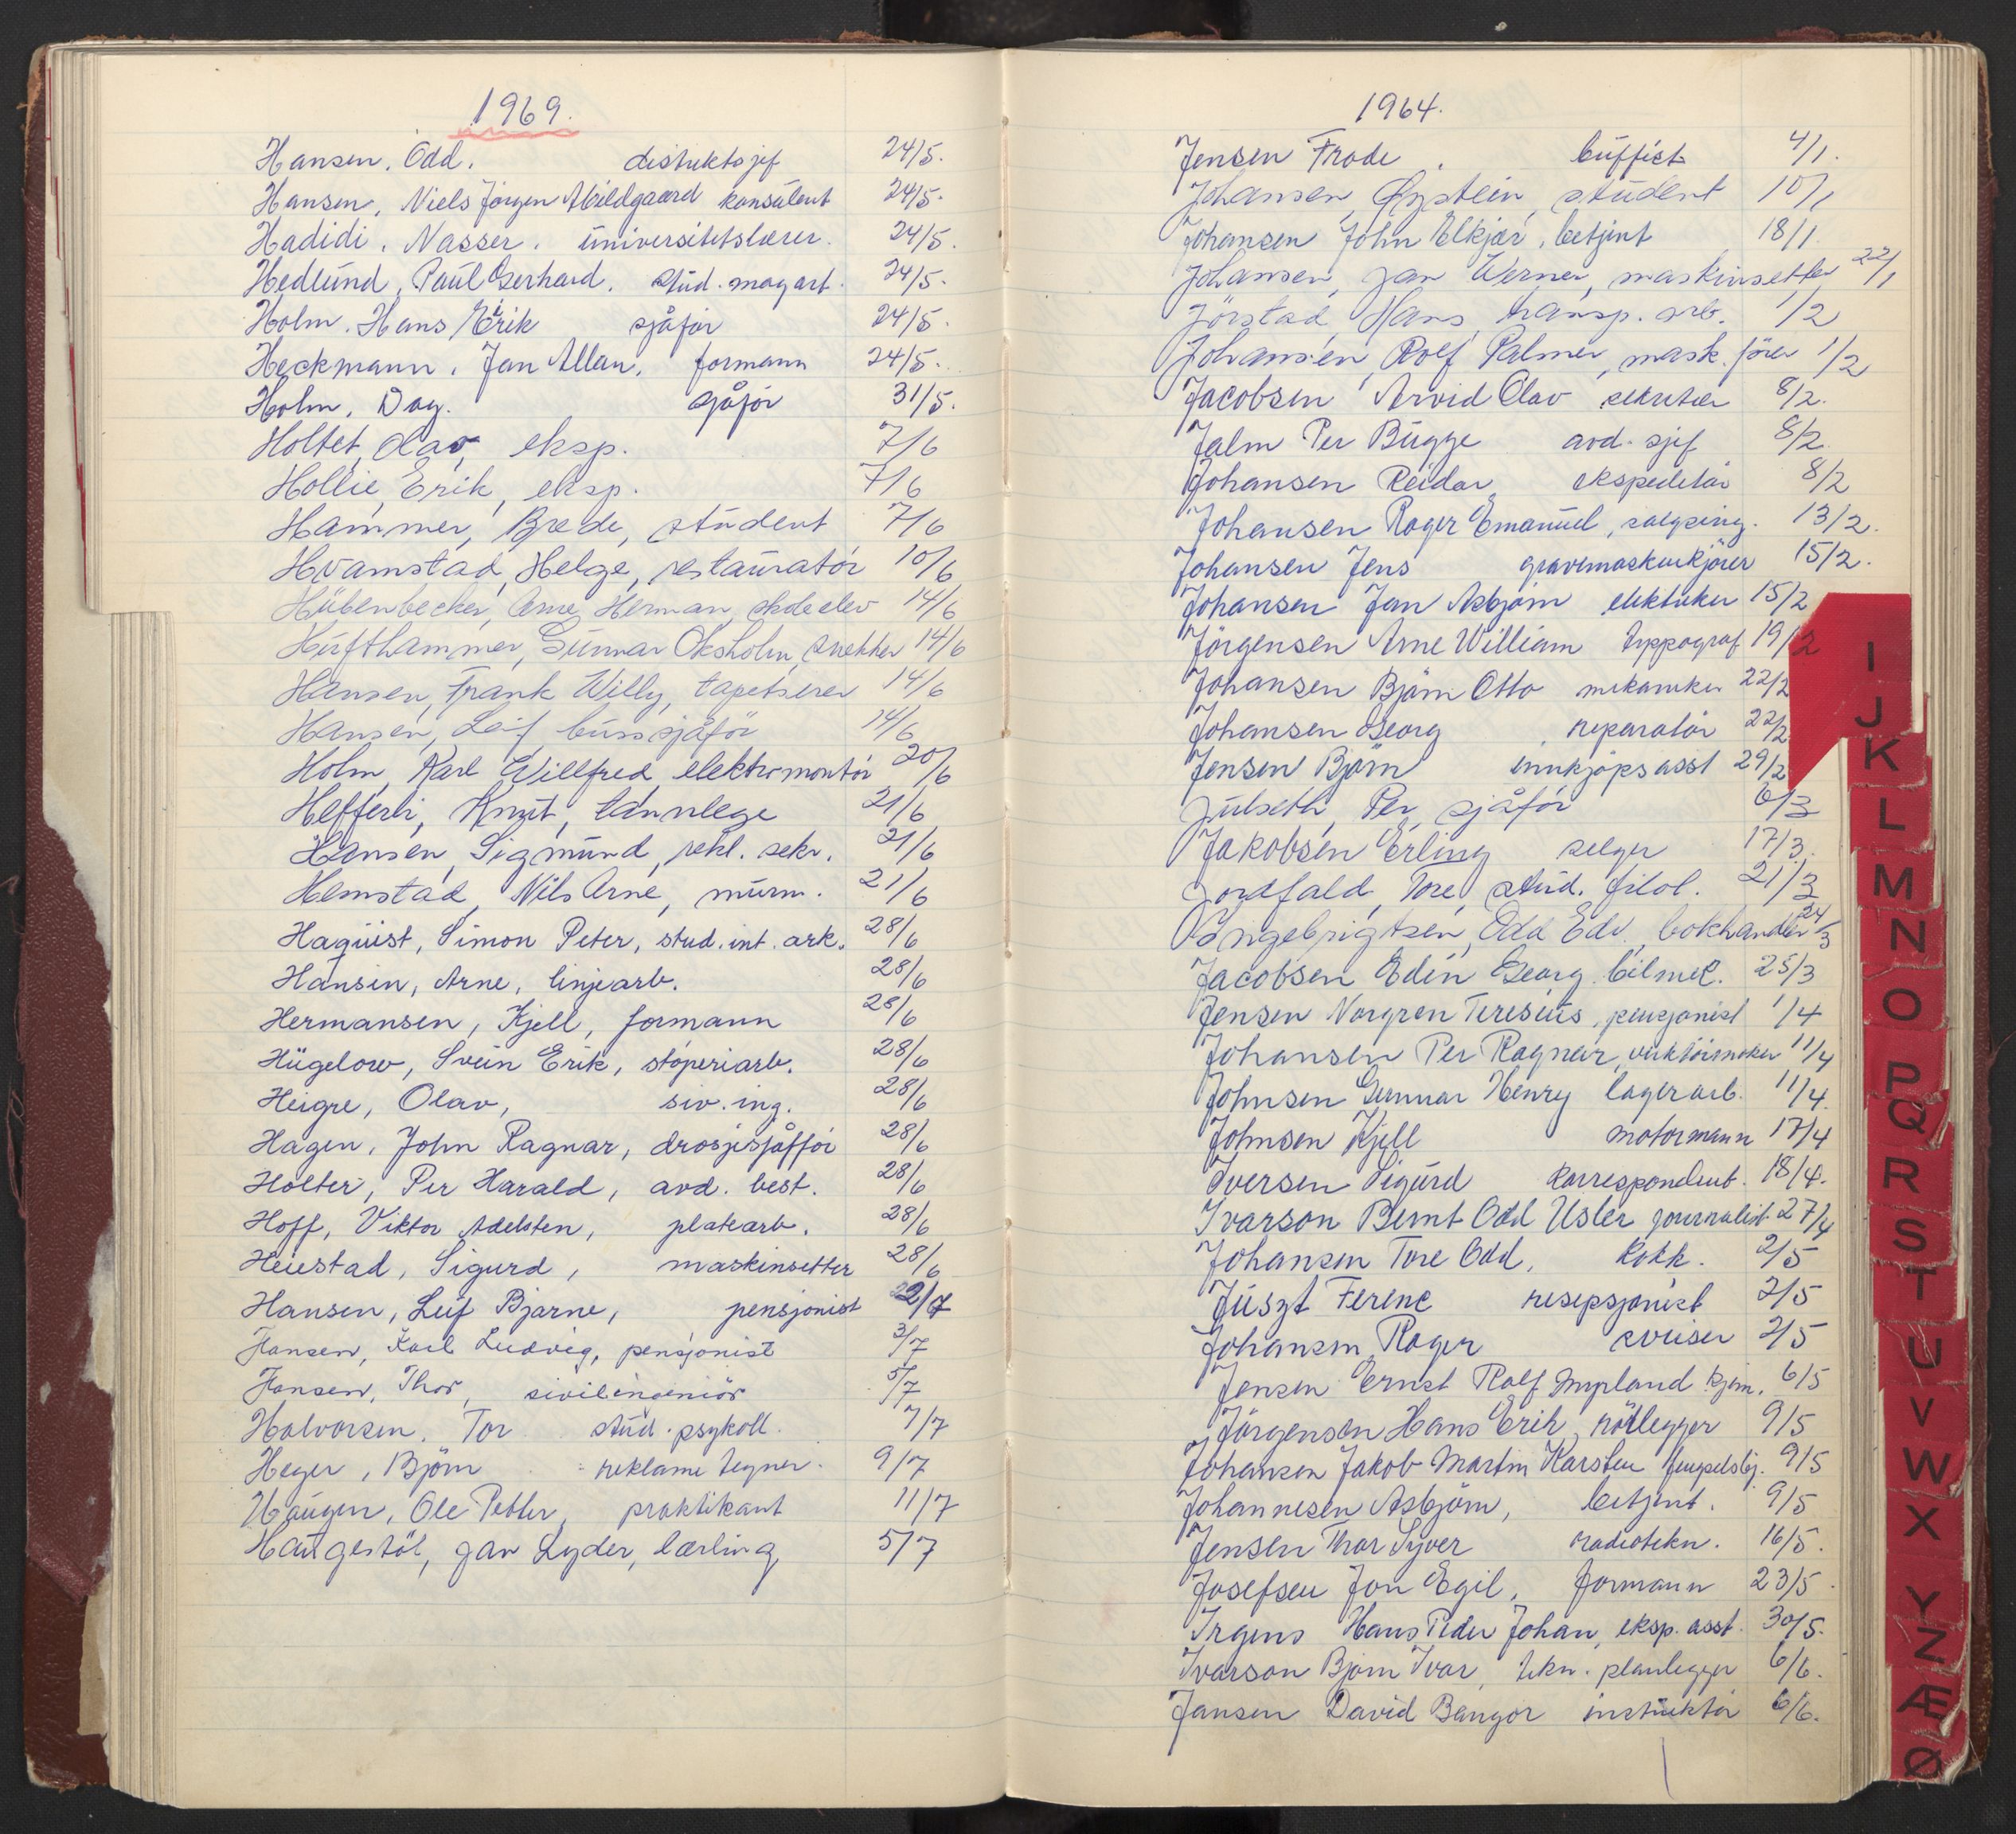 1969.
Hansen, Odd. distriktssjef 24/5.
Hansen, Niels Jörgen Abildgaard konsulent 24/5.
Hadidi, Nasser. universitetslærer. 24/5.
Hedlund, Paul Gerhard. stud. mag art. 24/5.
Holm, Hans Erik sjåför 24/5.
Heckmann, Jan Allan. formann 24/5.
Holm, Dag. sjåför 31/5.
Holtet, Olav, eksp. 7/6
Hollie, Erik, eksp. 7/6
Hammer, Brede, student 7/6
Hvamstad, Helge, restauratör 10/6
Hübenbecker, Arne Herman, skoleelev 14/6
Hufthammer, Gunnar Oksholm, snekker 14/6
Hansen, Frank Willy, tapetserer 14/6
Hansen, Leif bussjåför 14/6
Holm, Karl Willfred elektromontör 20/6
Knut, tannlege 21/6
Hansen, Sigmund, rekl. sekr. 21/6
Hemstad, Nils Arne, murm. 21/6
Haquist, Simon Peter, stud. int. ark. 28/6
Hansen, Arne, linjearb. 28/6
Hermansen, Kjell, formann 28/6
Hügelow, Svein Erik, stöperiarb. 28/6
Heigre, Olav, siv. ing. 28/6
Hagen, John Ragnar, drosjesjåfför 28/6
Holter, Per Harald, avd. best. 28/6
Hoff, Viktor Adelsten, platearb. 28/6
Heiestad, Sigurd, maskinsetter 28/6
Hansen, Leif Bjarne, pensjonist 2/7
Hansen, Karl Ludvig, pensjonist 3/7
Hansen, Thor, sivilingeniör 5/7
Halvorsen, Tor stud. psykoll. 7/7
Heger, Björn reklame tegner. 9/7
Haugen, Ole Petter, praktikant 11/7
Haugestöl, Jan Lyder, lærling 5/7
1964.
Jensen Frode. buffist 4/1.
Johansen, Øystein, student 10/1
Johansen John Elkjær, betjent 18/1
Johansen, Jan Werner, maskinsetter 22/1
Jörstad, Hans, transp. arb. 1/2
Johansen, Rolf Palmer, mask. förer 1/2
Jacobsen Arvid Olav sekretær 8/2.
Jalm Per Bugge avd. sjef 8/2.
Johansen Reidar ekspeditör 8/2
Johansen Roger Emanuel, salgsing. 13/2.
Johansen Jens gravemaskinkjörer 15/2.
Johansen Jan Asbjörn elektriker 15/2
Jörgensen Arne William typpograf 19/2
Johansen Björn Otto mekaniker 22/2
Johansen Georg reparatör 22/2
Jensen Björn innkjöpsasst 29/2
Julseth, Per, sjåför 6/3
Jakobsen Erling selger 17/3.
Jordfald, Tore, stud. filol. 21/3
Ingebrigtsen, Odd Edv. bokhandler 24/3
Jacobsen Edin Georg bilmek. 25/3
Jensen Norgren Teresius, pensjonist 1/4
Johansen Per Ragnar, verktöimaker 11/4
Johnsen Gunnar Henry lagerarb. 11/4.
Johnsen Kjell motormann 17/4
Iversen Sigurd korrespondent. 18/4.
Ivarson Bernt Odd Usler journalist 27/4
Johansen Tore Odd, kokk. 2/5
Juszt Ferenc resepsjonist 2/5
Johansen Roger sveiser 2/5
Jensen Ernst Rolf 6/5
Jörgenson Hans Erik, rörlegger 9/5
Johansen Jakob Martin Karsten fengselsbj. 9/5
Johannesen Asbjörn, betjent. 9/5
Jensen Thor Syver radiotekn. 16/5.
Josefsen Jon Egil, formann 23/5.
Irgens Hans Peder Johan, eksp. asst. 30/5.
Ivarson Björn Ivar, tekn. planlegger 6/6.
Jansen David Bangor instruktör 6/6.
I
J
K
L
M
N
O
P
Q
R
S
T
U
V
W
X
Y
Z
Æ
Ø